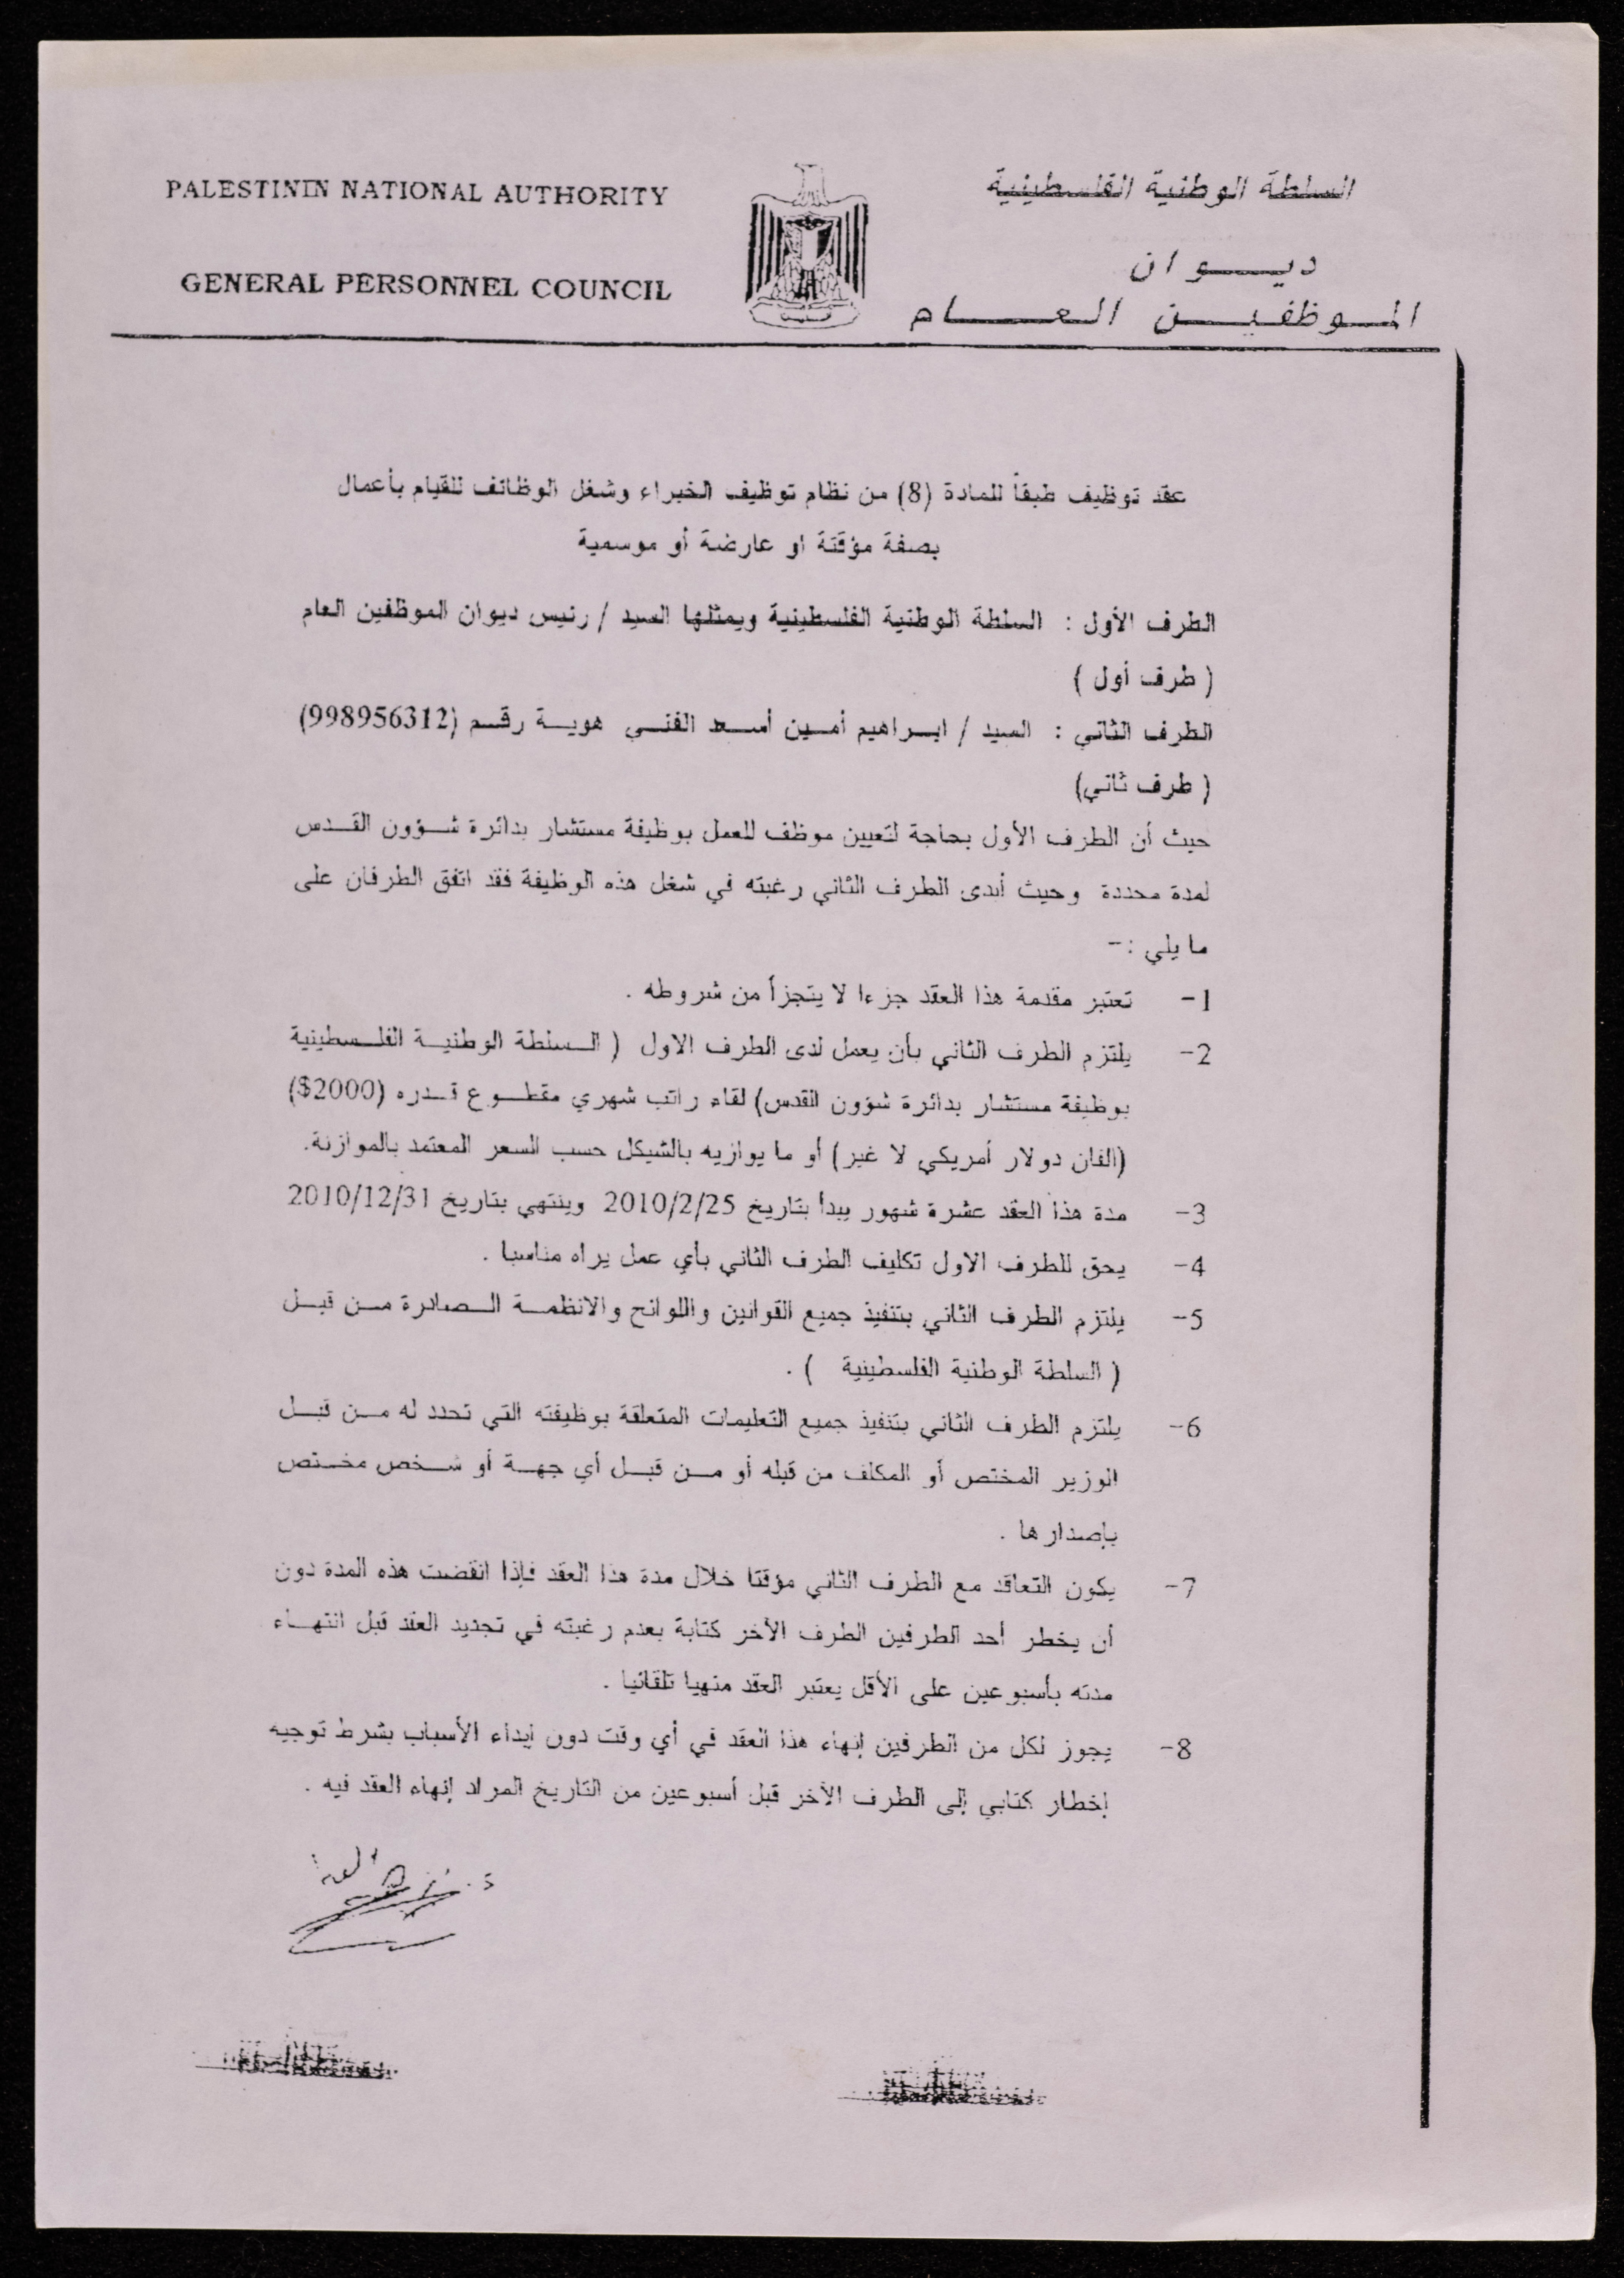 PALESTININ NATIONAL AUTHORITY
السلطة الوطنية الفلسطينية
GENERAL PERSONNEL COUNCIL
ديوان
الموظفين العام
عقد توظيف طبقاً للمادة (8) من نظام توظيف الخبراء وشغل الوظائف للقيام بأعمال
بصفة مؤقتة او عارضة أو موسمية
الطرف الأول : السلطة الوطنية الفلسطينية ويمثلها السيد / رئيس ديوان الموظفين العام
( طرف أول )
الطرف الثاني : السيد / ابراهيم أمين أسعد الفني هوية رقم (998956312)
( طرف ثاني)
حيث أن الطرف الأول بحاجة لتعيين موظف للعمل بوظيفة مستشار بدائرة شؤون القدس
لمدة محددة وحيث أبدى الطرف الثاني رغبته في شغل هذه الوظيفة فقد اتفق الطرفان على
ما يلي :-
1- تعتبر مقدمة هذا العقد جزءا لا يتجزأ من شروطه .
2- يلتزم الطرف الثاني بأن يعمل لدى الطرف الاول ( السلطة الوطنية الفلسطينية
بوظيفة مستشار بدائرة شؤون القدس) لقاء راتب شهري مقطوع قدره (2000$)
(الفان دولار أمريكي لا غير) أو ما يوازيه بالشيكل حسب السعر المعتمد بالموازنة.
3- مدة هذا العقد عشرة شهور يبدأ بتاريخ 2010/2/25 وينتهي بتاريخ 2010/12/31
4- يحق للطرف الاول تكليف الطرف الثاني بأي عمل يراه مناسبا .
5- يلتزم الطرف الثاني بتنفيذ جميع القوانين واللوائح والانظمة الصادرة من قبل
( السلطة الوطنية الفلسطينية ) .
6- يلتزم الطرف الثاني بتنفيذ جميع التعليمات المتعلقة بوظيفته التي تحدد له من قبل
الوزير المختص أو المكلف من قبله أو من قبل أي جهة أو شخص مختص
بإصدارها .
7- يكون التعاقد مع الطرف الثاني مؤقتا خلال مدة هذا العقد فإذا انقضت هذه المدة دون
أن يخطر أحد الطرفين الطرف الأخر كتابة بعدم رغبته في تجديد العقد قبل انتهاء
مدته بأسبوعين على الأقل يعتبر العقد منهيا تلقائيا .
8- يجوز لكل من الطرفين إنهاء هذا العقد في أي وقت دون إبداء الأسباب بشرط توجيه
إخطار كتابي إلى الطرف الأخر قبل أسبوعين من التاريخ المراد إنهاء العقد فيه .